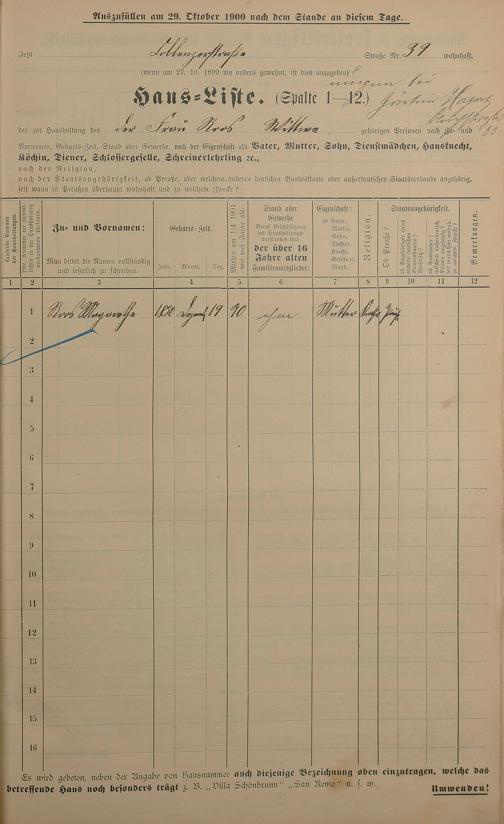 Auszufüllen am 29. Oktober 1900 nach dem Stande an diesem Tage.
Jetzt Coblenzerstraße Straße Nr. 39 wohnhaft.
(wenn am 27. 10. 1899 wo anders gewohnt, ist dies anzugeben)
Haus-Liste. (Spalte 1—12.)
der zur Haushaltung des der Frau Roos Wittwe gehörigen Personen nach Zu- und
Vornamen, Geburts-Zeit, Stand oder Gewerbe, nach der Eigenschaft als Vater, Mutter, Sohn, Dienstmädchen, Hausknecht,
Köchin, Diener, Schlossergeselle, Schreinerlehrling ec.,
nach der Religion,
nach der Staatsangehörigkeit, ob Preuße, oder welchem anderen deutschen Bundesstaate oder außerdeutschen Staatsverbande angehörig,
seit wann in Preußen überhaupt wohnhaft und zu welchem Zwecke?
Zu- und Vornamen:
Man bittet die Namen vollständig
und leserlich zu schreiben.
Geburts-Zeit.
Jahr. Monat. Tag.
Stand oder
Gewerbe
der über 16
Jahre alten
Familienmitglieder.
Eigenschaft:
ob Vater,
Mutter,
Sohn,
Tochter,
Knecht,
Magd.
Religion.
Staatsangehörigkeit.
Ob Preuße?
Bemerkungen.
1 2 3 4 5 6 7 8 9 10 11 12
1 Roos Margarethe 19 ohne Mutter
2
3
4
5
6
7
8
9
10
11
12
13
14
15
16
Es wird gebeten, neben der Angabe von Hausnummer auch diejenige Bezeichnung oben einzutragen, welche das
betreffende Haus noch besonders trägt z. B. „Villa Schönbrunn" „San Remo" u. s. w.
Umwenden!